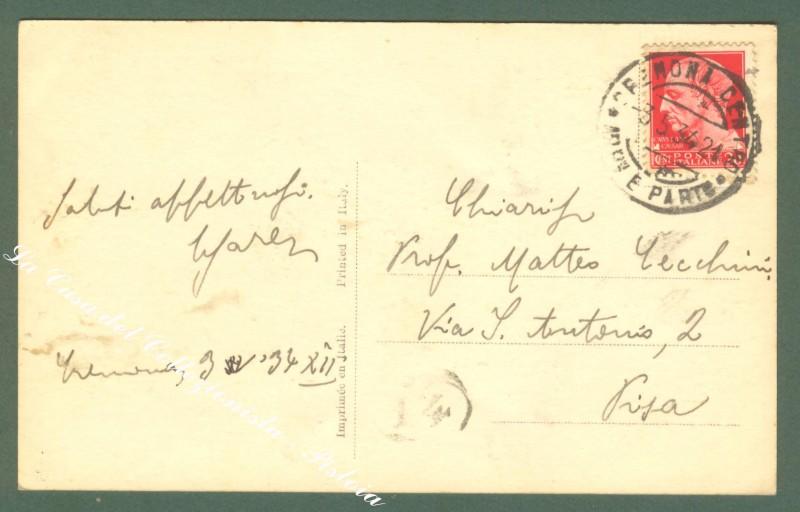 Saluti affettuosi.
Cremona, 3 V '34 XII
Imprimée en Italie. Printed in Italy.
CREMONA CENTRO
3.5.34.21
E PARTE
POSTE
ITALIANE
Chiariss
Prof. Matteo Cecchini
Via S. Antonio, 2
Pisa
La Casa del Collezionista - Pistoia